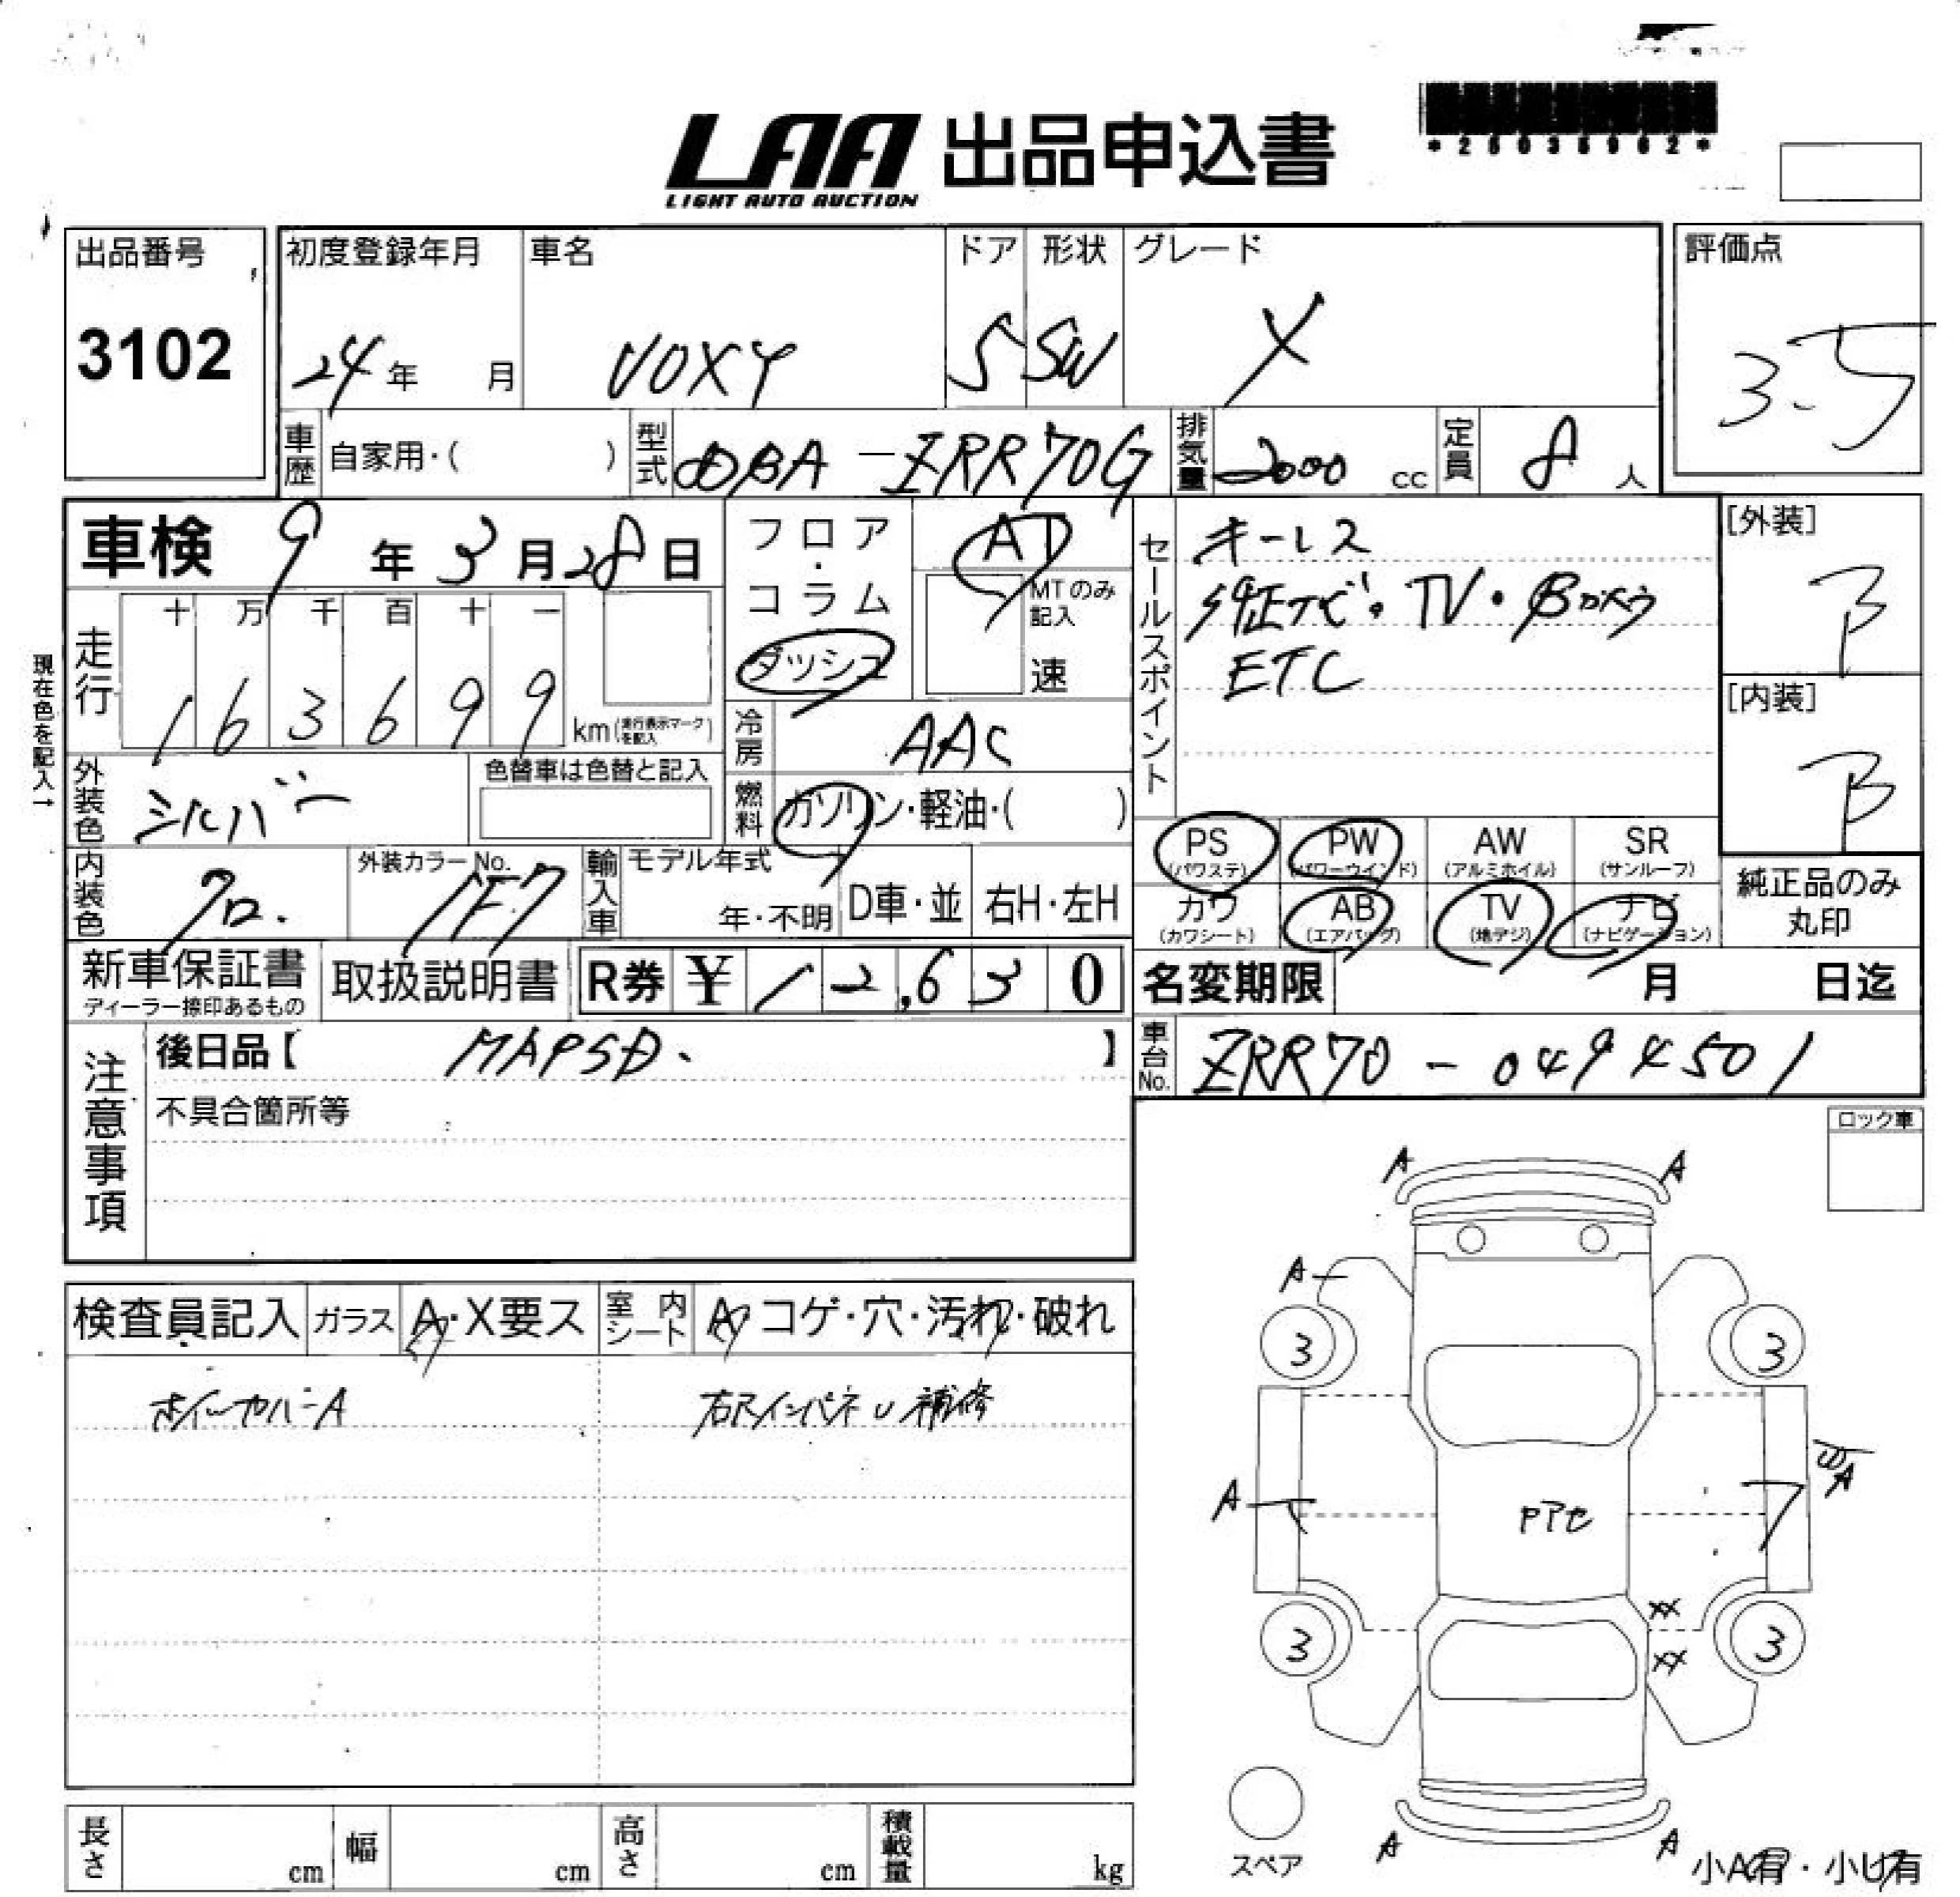 LAA 出品申込書
LIGHT AUTO AUCTION
出品番号
3102
初度登録年月
24年 月
車名
VOXY
ドア
5
形状
SW
グレード
X
評価点
3.5
車歴 自家用・( )
型式 DBA-ZRR70G
排気量 2000 cc
定員 8 人
車検 9年3月28日
現在色を記入→
走行
十 万 千 百 十 一
1 6 3 6 9 9 km(走行表示マークを記入)
フロア・コラム
ダッシュ
AT
MTのみ記入
速
セールスポイント
キーレス
純正ナビ・TV・Bカメラ
ETC
[外装]
B
[内装]
B
冷房 AAC
燃料 ガソリン・軽油・( )
外装色 シルバー
色替車は色替と記入
内装色 クロ.
外装カラーNo.
1F7
輸入車
モデル年式
年・不明
D車・並
右H・左H
PS
(パワステ)
PW
(パワーウインド)
AW
(アルミホイル)
SR
(サンルーフ)
カワ
(カワシート)
AB
(エアバッグ)
TV
(地デジ)
ナビ
(ナビゲーション)
純正品のみ
丸印
新車保証書
ディーラー捺印あるもの
取扱説明書
R券 ¥ 12,630
名変期限 月 日迄
車台No. ZRR70-0494501
注意事項
後日品【 MAPSD. 】
不具合箇所等
ロック車
検査員記入
ガラス A・X要ス
室内シート
コゲ・穴・汚れ・破れ
ホイールカバーA
補修
A A
A
3 3
A
A
XX
XX
3 3
A A
スペア
小A有・小U有
長さ cm
幅 cm
高さ cm
積載量 kg